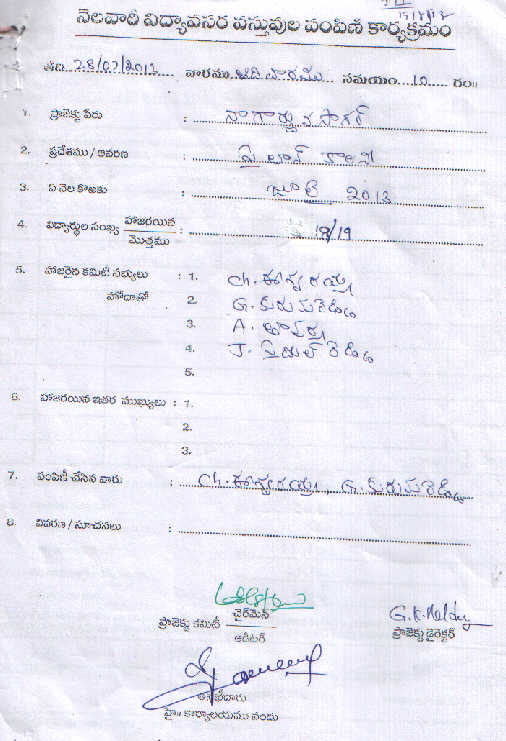 15/8/13
నెలవారీ విద్యావసర వస్తువుల పంపిణి కార్యక్రమం
తేది 28/07/2013 వారము ఆది వారము సమయం 10 గం||
1. ప్రాజెక్టు పేరు : నాగార్జున సాగర్
2. ప్రదేశము / ఆవరణ : పైలాన్ కాలని
3. ఏ నెల కొఱకు : జూలై 2013
4. విద్యార్థుల సంఖ్య హాజరయిన / మొత్తము : 18/19
5. హాజరైన కమిటీ సభ్యులు : 1. Ch. ఈశ్వరయ్య
హోదాతో 2. G.
3. A.
4. J. రెడ్డి
5.
6. హాజరయిన ఇతర ముఖ్యులు : 1.
2.
3.
7. పంపిణీ చేసిన వారు : Ch. ఈశ్వరయ్య, G.
8. వివరణ / సూచనలు :
ప్రాజెక్టు కమిటీ చైర్‌మెన్ / ఆడిటర్
G.K. Reddy
ప్రాజెక్టు డైరెక్టర్
హై|| కార్యాలయము నందు